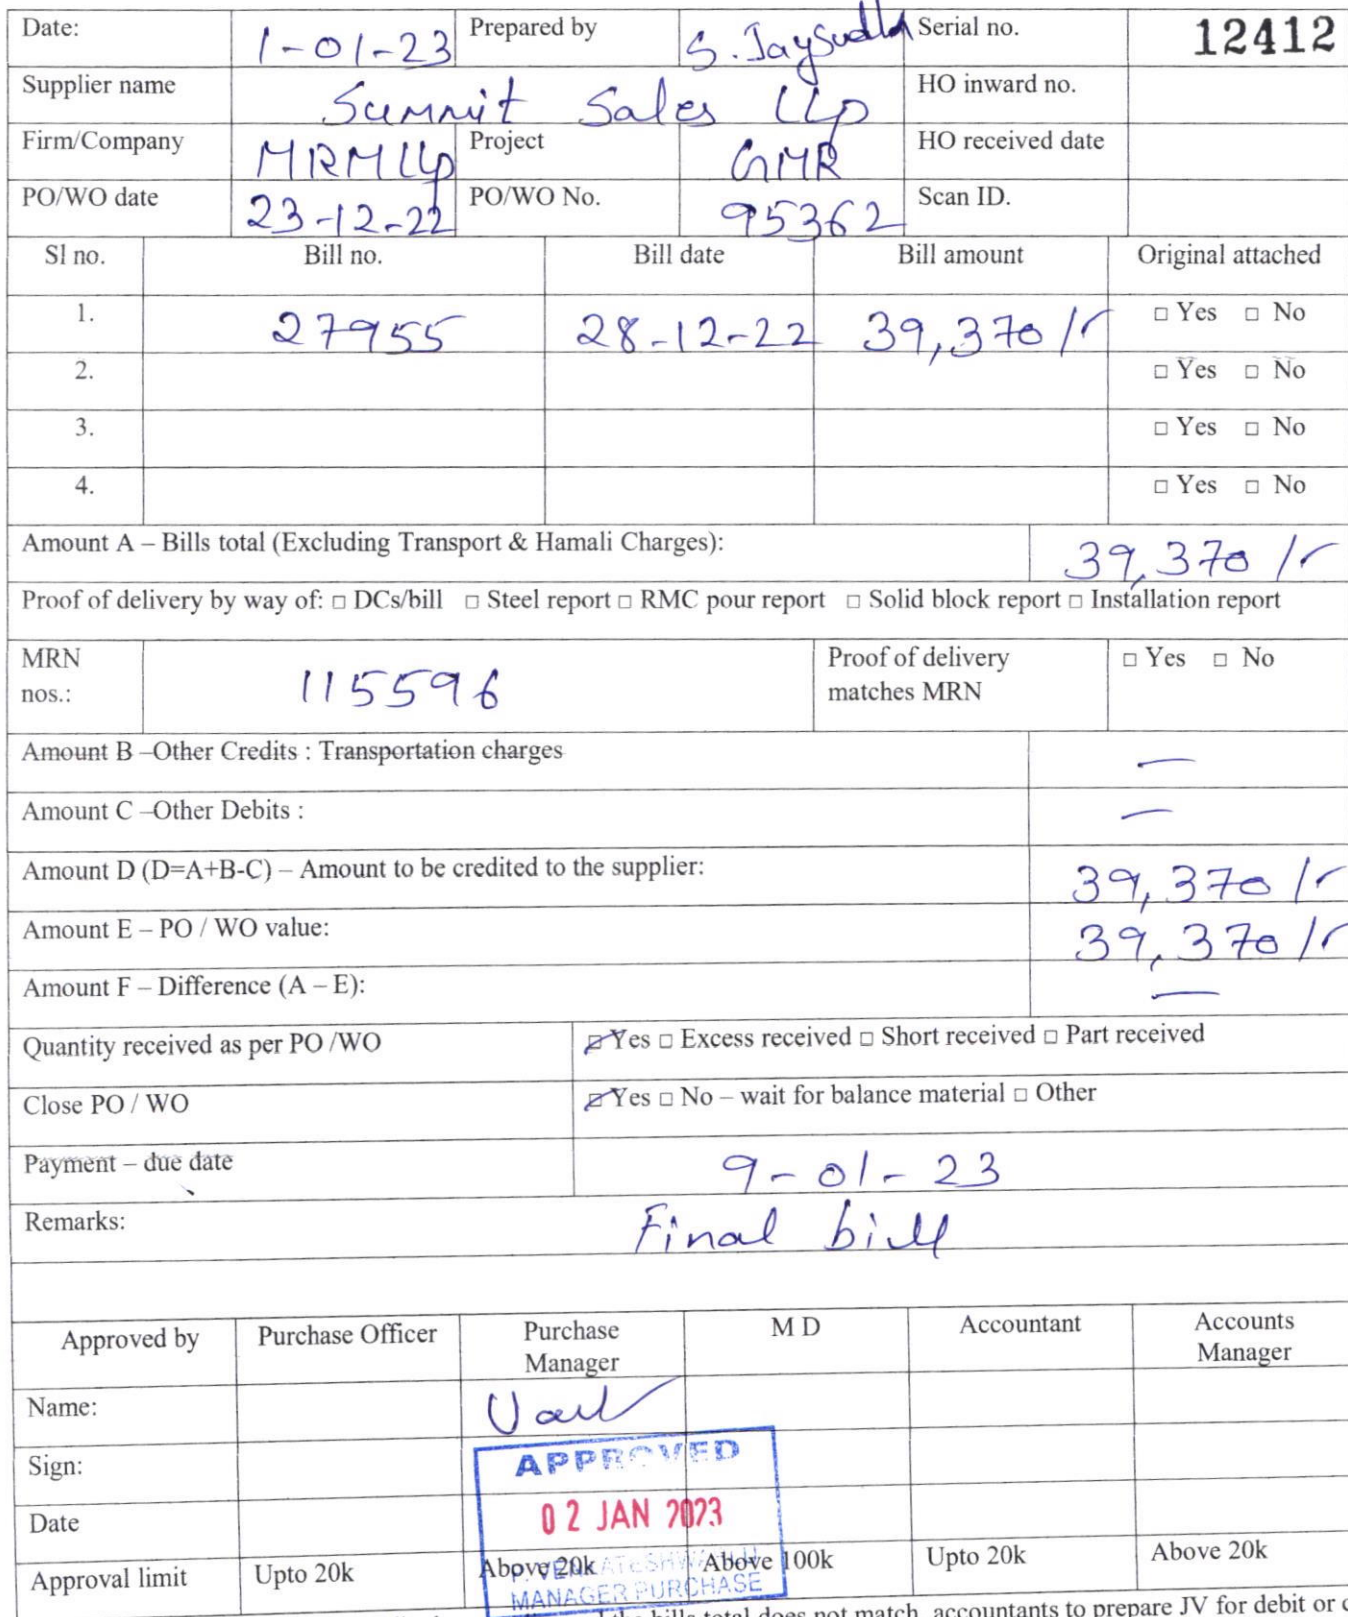 Date: 1-01-23 Prepared by S. Jaysudha Serial no. 12412
Supplier name Summit Sales LLp HO inward no.
Firm/Company MRMLLp Project GMR HO received date
PO/WO date 23-12-22 PO/WO No. 95362 Scan ID.
Sl no. Bill no. Bill date Bill amount Original attached
1. 27955 28-12-22 39,370/- □ Yes □ No
2. □ Yes □ No
3. □ Yes □ No
4. □ Yes □ No
Amount A – Bills total (Excluding Transport & Hamali Charges): 39,370/-
Proof of delivery by way of: □ DCs/bill □ Steel report □ RMC pour report □ Solid block report □ Installation report
MRN nos.: 115596 Proof of delivery matches MRN □ Yes □ No
Amount B –Other Credits : Transportation charges —
Amount C –Other Debits : —
Amount D (D=A+B-C) – Amount to be credited to the supplier: 39,370/-
Amount E – PO / WO value: 39,370/-
Amount F – Difference (A – E): —
Quantity received as per PO /WO ☑ Yes □ Excess received □ Short received □ Part received
Close PO / WO ☑ Yes □ No – wait for balance material □ Other
Payment – due date 9-01-23
Remarks: Final bill
Approved by Purchase Officer Purchase Manager M D Accountant Accounts Manager
Name:
Sign:
APPROVED
Date
02 JAN 2023
Approval limit Upto 20k Above 20k Above 100k Upto 20k Above 20k
MANAGER PURCHASE
the bills total does not match, accountants to prepare JV for debit or